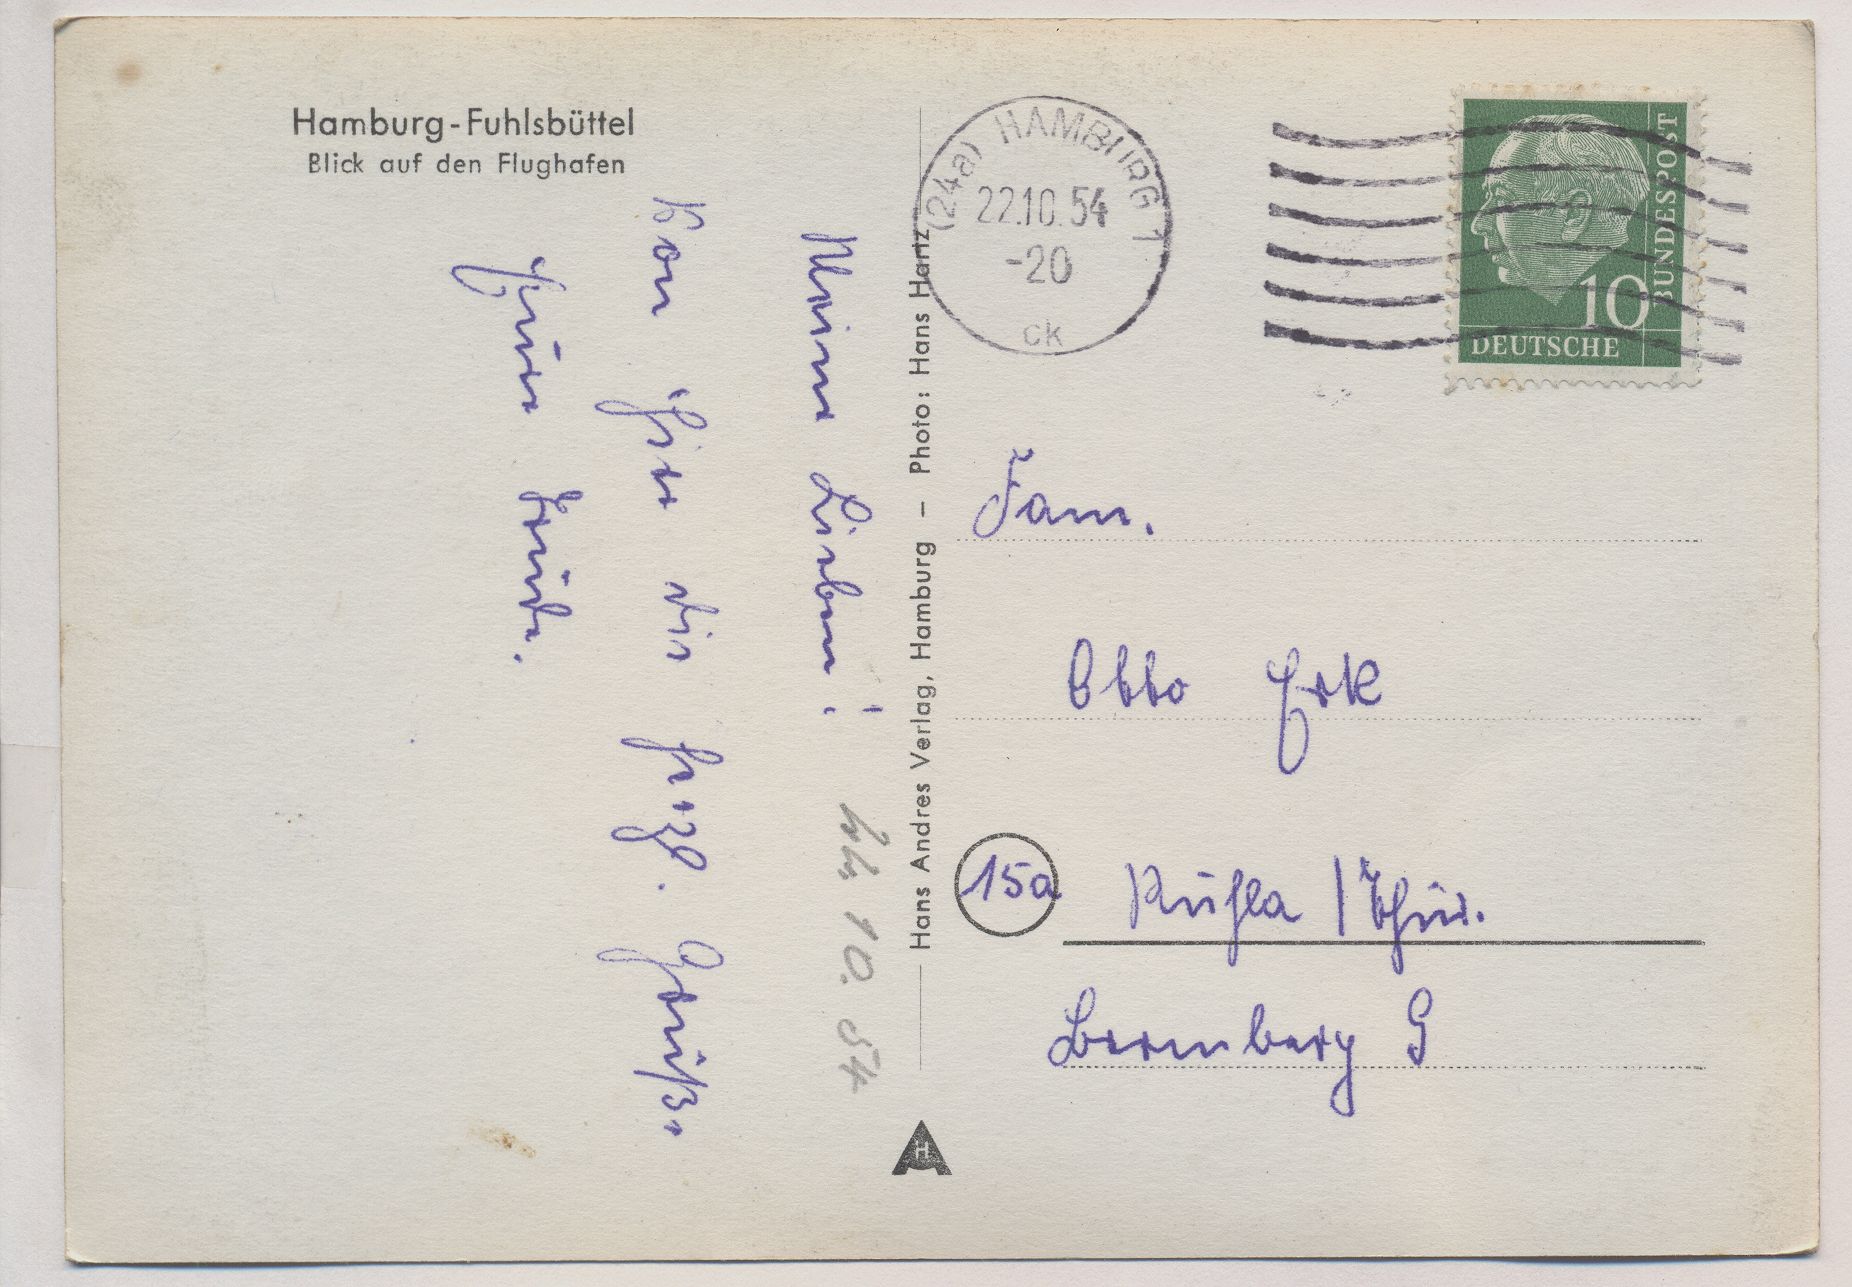 Hamburg-Fuhlsbüttel
Blick auf den Flughafen
Meine Lieben!
Von hier die herzl. Grüße
Eure Trude.
22. 10. 54
Hans Andres Verlag, Hamburg – Photo: Hans Hartz
(24a) HAMBURG 1
22.10.54
-20
ck
10
DEUTSCHE
BUNDESPOST
Fam.
Otto Erk
15a Ruhla / Thür.
9
H